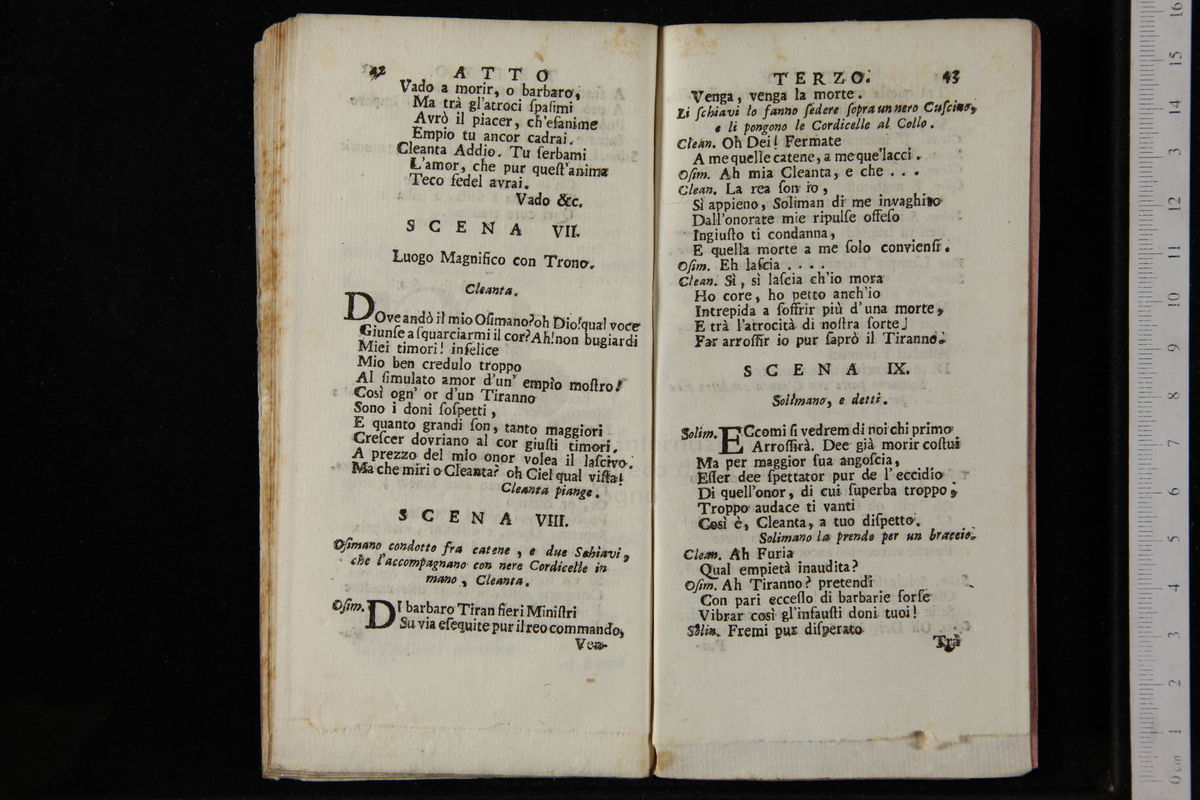 42 ATTO
Vado a morir, o barbaro,
Ma trà gl'atroci ſpaſimi
Avrò il piacer, ch'eſanime
Empio tu ancor cadrai.
Cleanta Addio. Tu ſerbami
L'amor, che pur queſt'anima
Teco fedel avrai.
Vado &c.
SCENA VII.
Luogo Magnifico con Trono.
Cleanta.
DOve andò il mio Oſimano? oh Dio! qual voce
Giunſe a ſquarciarmi il cor? Ah! non bugiardi
Miei timori! infelice
Mio ben credulo troppo
Al ſimulato amor d'un' empio moſtro!
Così ogn' or d'un Tiranno
Sono i doni ſoſpetti,
E quanto grandi ſon, tanto maggiori
Creſcer dovriano al cor giuſti timori.
A prezzo del mio onor volea il laſcivo.
Ma che miri o Cleanta? oh Ciel qual viſta!
Cleanta piange.
SCENA VIII.
Oſimano condotto fra catene, e due Schiavi,
che l'accompagnano con nere Cordicelle in
mano, Cleanta.
Oſim. DI barbaro Tiran fieri Miniſtri
Su via eſequite pur il reo commando,
Ven-
TERZO. 43
Venga, venga la morte.
Li ſchiavi lo fanno ſedere ſopra un nero Cuſcino,
e li pongono le Cordicelle al Collo.
Clean. Oh Dei! Fermate
A me quelle catene, a me que'lacci.
Oſim. Ah mia Cleanta, e che . . .
Clean. La rea ſon io,
Sì appieno, Soliman di me invaghito
Dall'onorate mie ripulſe offeſo
Ingiuſto ti condanna,
E quella morte a me ſolo convienſi.
Oſim. Eh laſcia . . . .
Clean. Sì, sì laſcia ch'io mora
Ho core, ho petto anch'io
Intrepida a ſoffrir più d'una morte,
E trà l'atrocità di noſtra ſorte
Far arroſſir io pur ſaprò il Tiranno.
SCENA IX.
Solimano, e detti.
Solim. ECcomi ſi vedrem di noi chi primo
Arroſſirà. Dee già morir coſtui
Ma per maggior ſua angoſcia,
Eſſer dee ſpettator pur de l'eccidio
Di quell'onor, di cui ſuperba troppo,
Troppo audace ti vanti
Così è, Cleanta, a tuo diſpetto.
Solimano la prende per un braccio.
Clean. Ah Furia
Qual empietà inaudita?
Oſim. Ah Tiranno? pretendi
Con pari ecceſſo di barbarie forſe
Vibrar così gl'infauſti doni tuoi!
Solim. Fremi pur diſperato
Trà